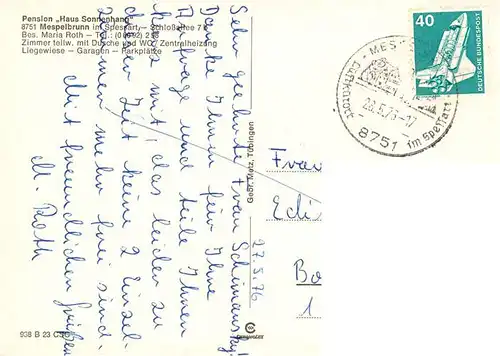 Pension „Haus Sonnenhang"
8751 Mespelbrunn im Spessart - Schloßallee 7
Bes. Maria Roth - Tel.: (0 2
Zimmer teilw. mit Dusche und WC, Zentralheizung
Liegewiese - Garagen - Parkplätze
Sehr geehrte Frau Schimansky!
Danke Ihnen für Ihre
Anfrage und teile Ihnen
kurz mit, das leider zu
der Zeit keine 2 Einzel-
zimmer mehr frei sind.
Mit freundlichen Grüßen
M. Roth
27.5.76
Gebr. Metz, Tübingen
938 B 23 CSG
40
DEUTSCHE BUNDESPOST
MES
Luftkurort
28.5.76-17
8751 im Spessart
Frau
Edi
Bo
1